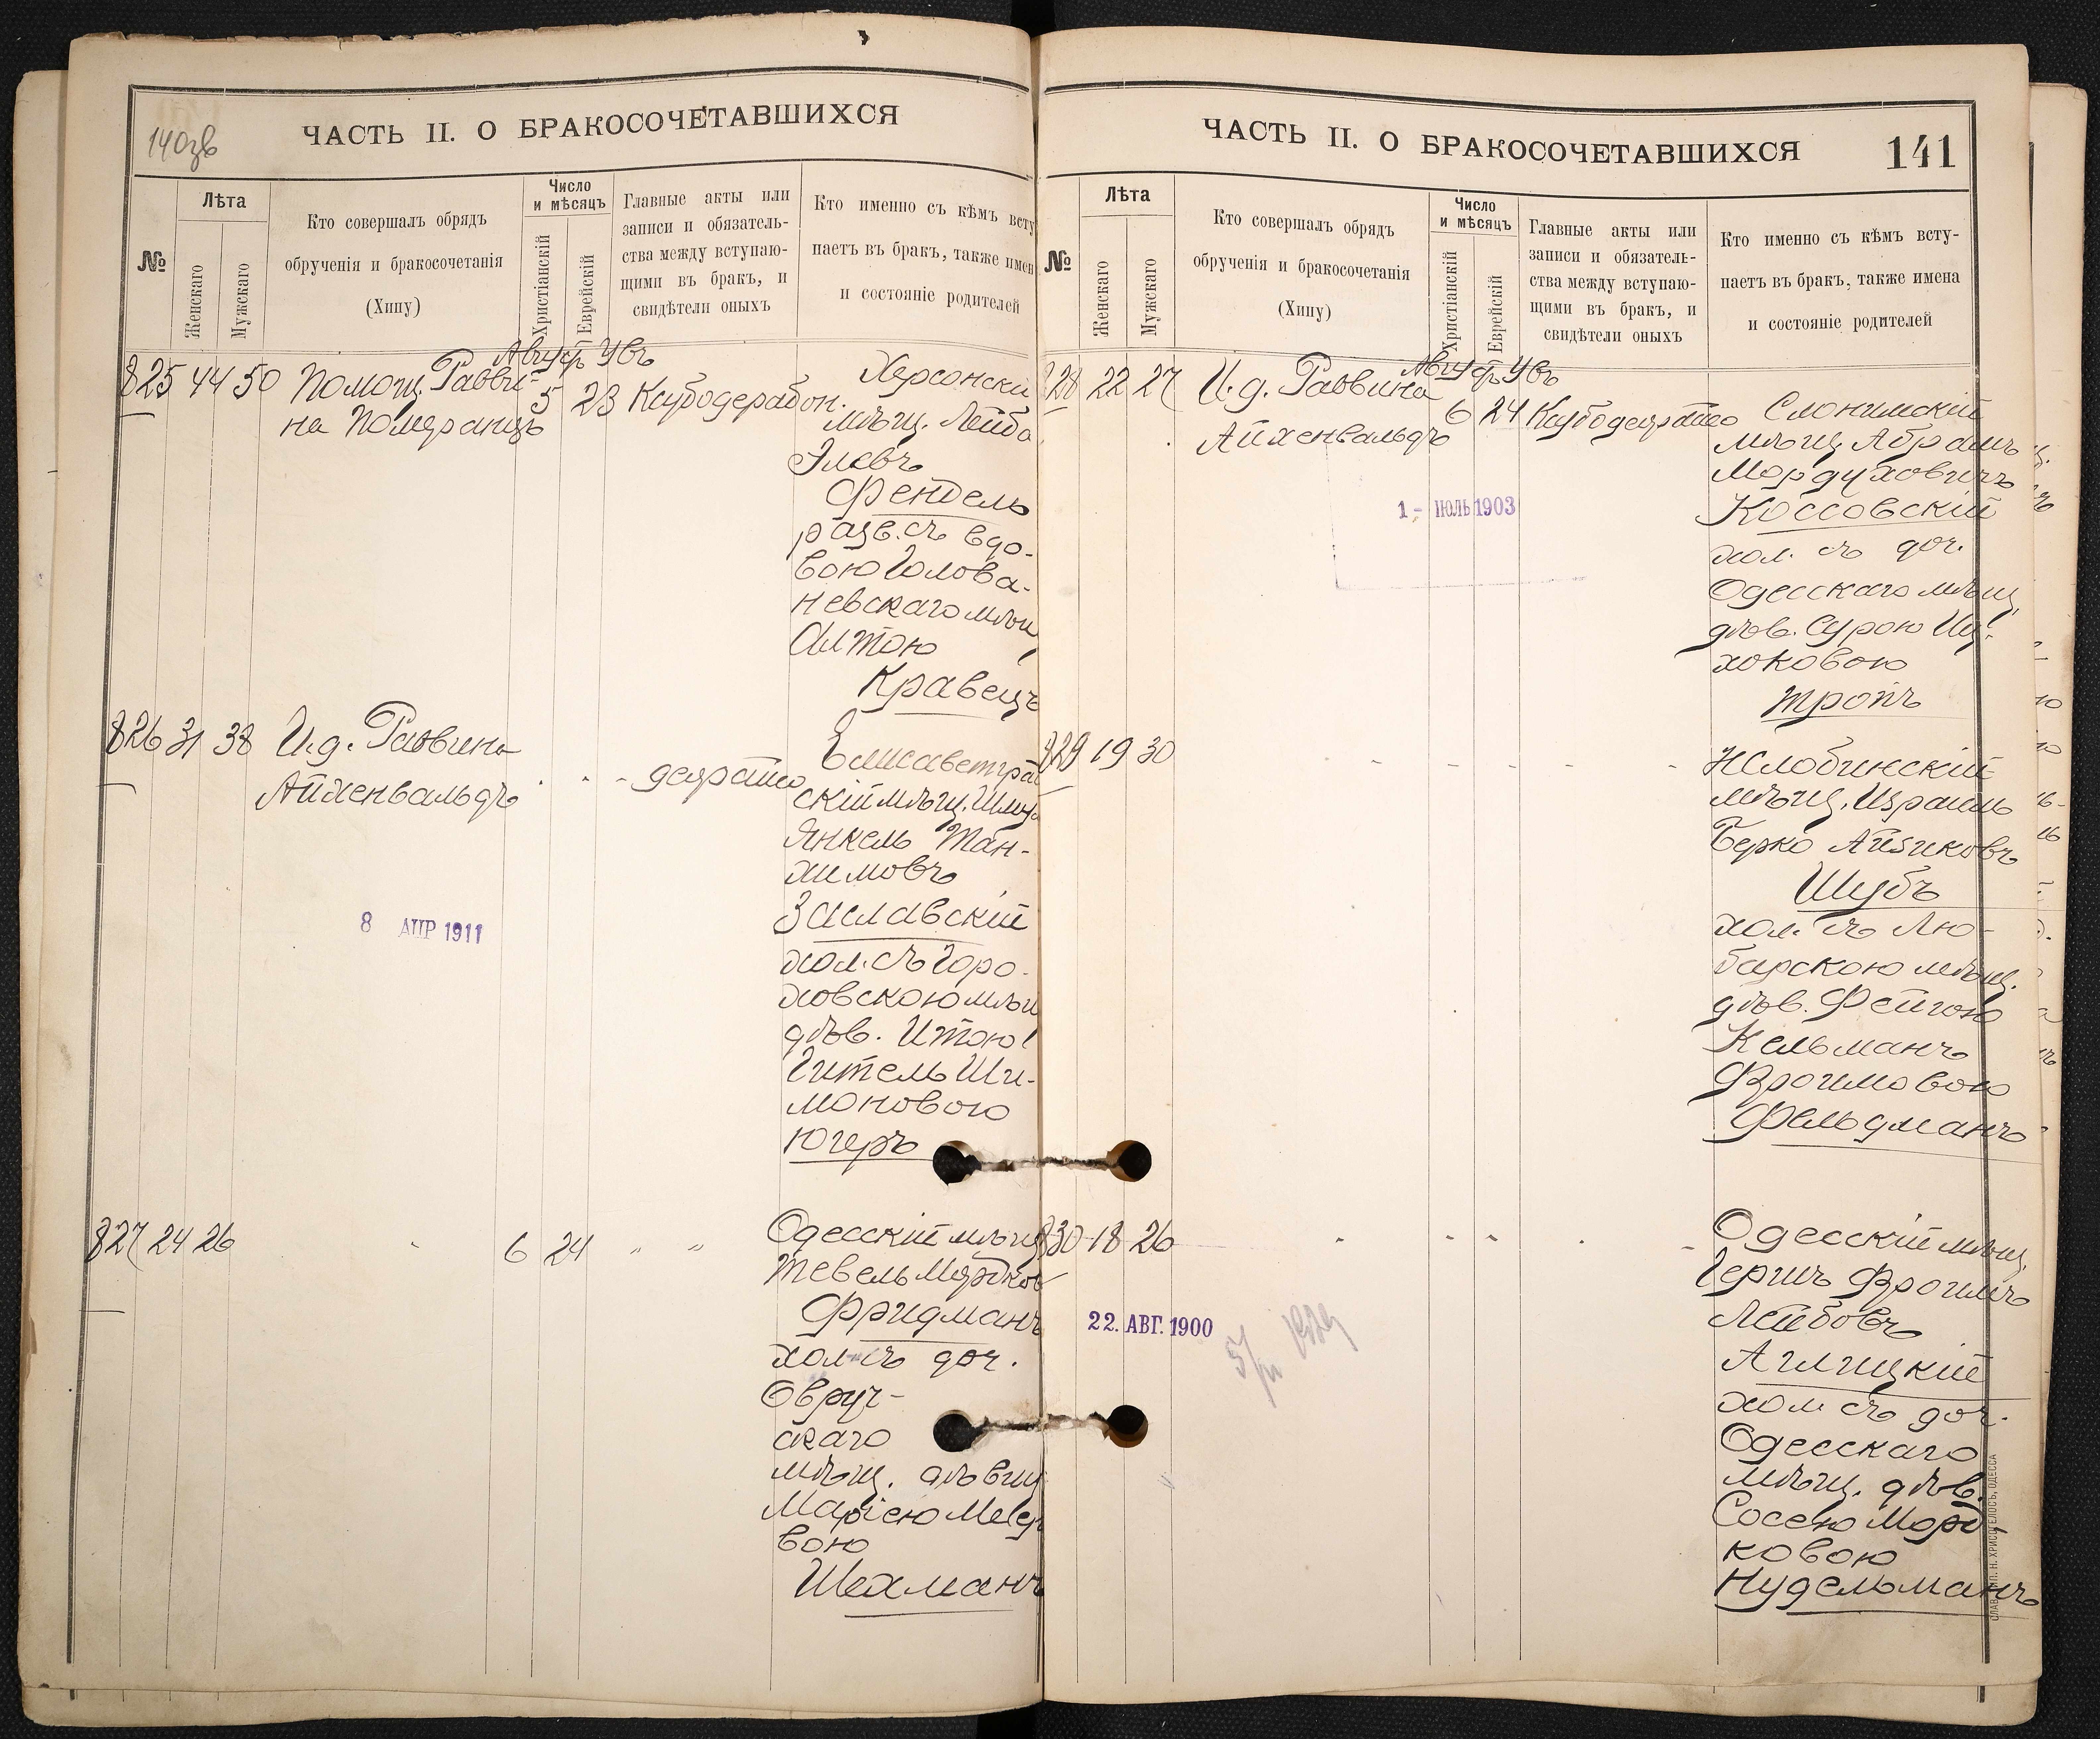 140зв
ЧАСТЬ II. О БРАКОСОЧЕТАВШИХСЯ
№
Лѣта
Женскаго
Мужскаго
Кто совершалъ обрядъ
обрученія и бракосочетанія
(Хипу)
Число
и мѣсяцъ
Христіанскій
Еврейскій
Главные акты или
записи и обязатель-
ства между вступаю-
щими въ бракъ, и
свидѣтели оныхъ
Кто именно съ кѣмъ всту
паетъ въ бракъ, также имен
и состояніе родителей
825 44 50 Помощ. Равви-
на Померанцъ
Августъ
5 23
Херсонскій
мѣщ. Лейба
Элевъ
Фендель
разв. съ вдо-
вою Голова-
невскаго мѣщ
Алтою
Кравецъ
826 31 38 И.д. Раввина
Айхенвальдъ
Елисаветград
скій мѣщ. Шмуль
Янкель Тан-
химовъ
Заславскій
хол. съ Горо-
ховскою мѣщ
дѣв. Итою
Гитель Ши-
моновою
Югеръ
8 АПР 1911
827 24 26
6 24 " "
Одесскій мѣщ
Тевель Мордков
Фридманъ
хол. съ доч.
Овруч-
скаго
мѣщ. дѣвиц
Маріею Меер
вою
Шехманъ
ЧАСТЬ II. О БРАКОСОЧЕТАВШИХСЯ
141
№
Лѣта
Женскаго
Мужскаго
Кто совершалъ обрядъ
обрученія и бракосочетанія
(Хипу)
Число
и мѣсяцъ
Христіанскій
Еврейскій
Главные акты или
записи и обязатель-
ства между вступаю-
щими въ бракъ, и
свидѣтели оныхъ
Кто именно съ кѣмъ всту-
паетъ въ бракъ, также имена
и состояніе родителей
828 22 27 И.д. Раввина
Айхенвальдъ
Августъ
6 24
Слонимскій
мѣщ. Абрамъ
Мордуховичъ
Коссовскій
хол. съ доч.
Одесскаго мѣщ.
дѣв. Сурою Иц-
хоковою
Тропъ
1 - ІЮЛЬ 1903
829 19 30
Жлобинскій
мѣщ. Израиль
Берко Айзиковъ
Шубъ
хол. съ Лю-
барскою мѣщ.
дѣв. Фейгою
Кельманъ
Фроимовою
Фельдманъ
830 18 26
Одесскій мѣщ.
Гершъ Фроимъ
Лейбовъ
Аглицкій
хол съ доч.
Одесскаго
мѣщ. дѣв.
Сосею Морд-
ковою
Нудельманъ
22. АВГ. 1900
СЛАВ. ТИП. Н. ХРИСОГЕЛОСЪ, ОДЕССА